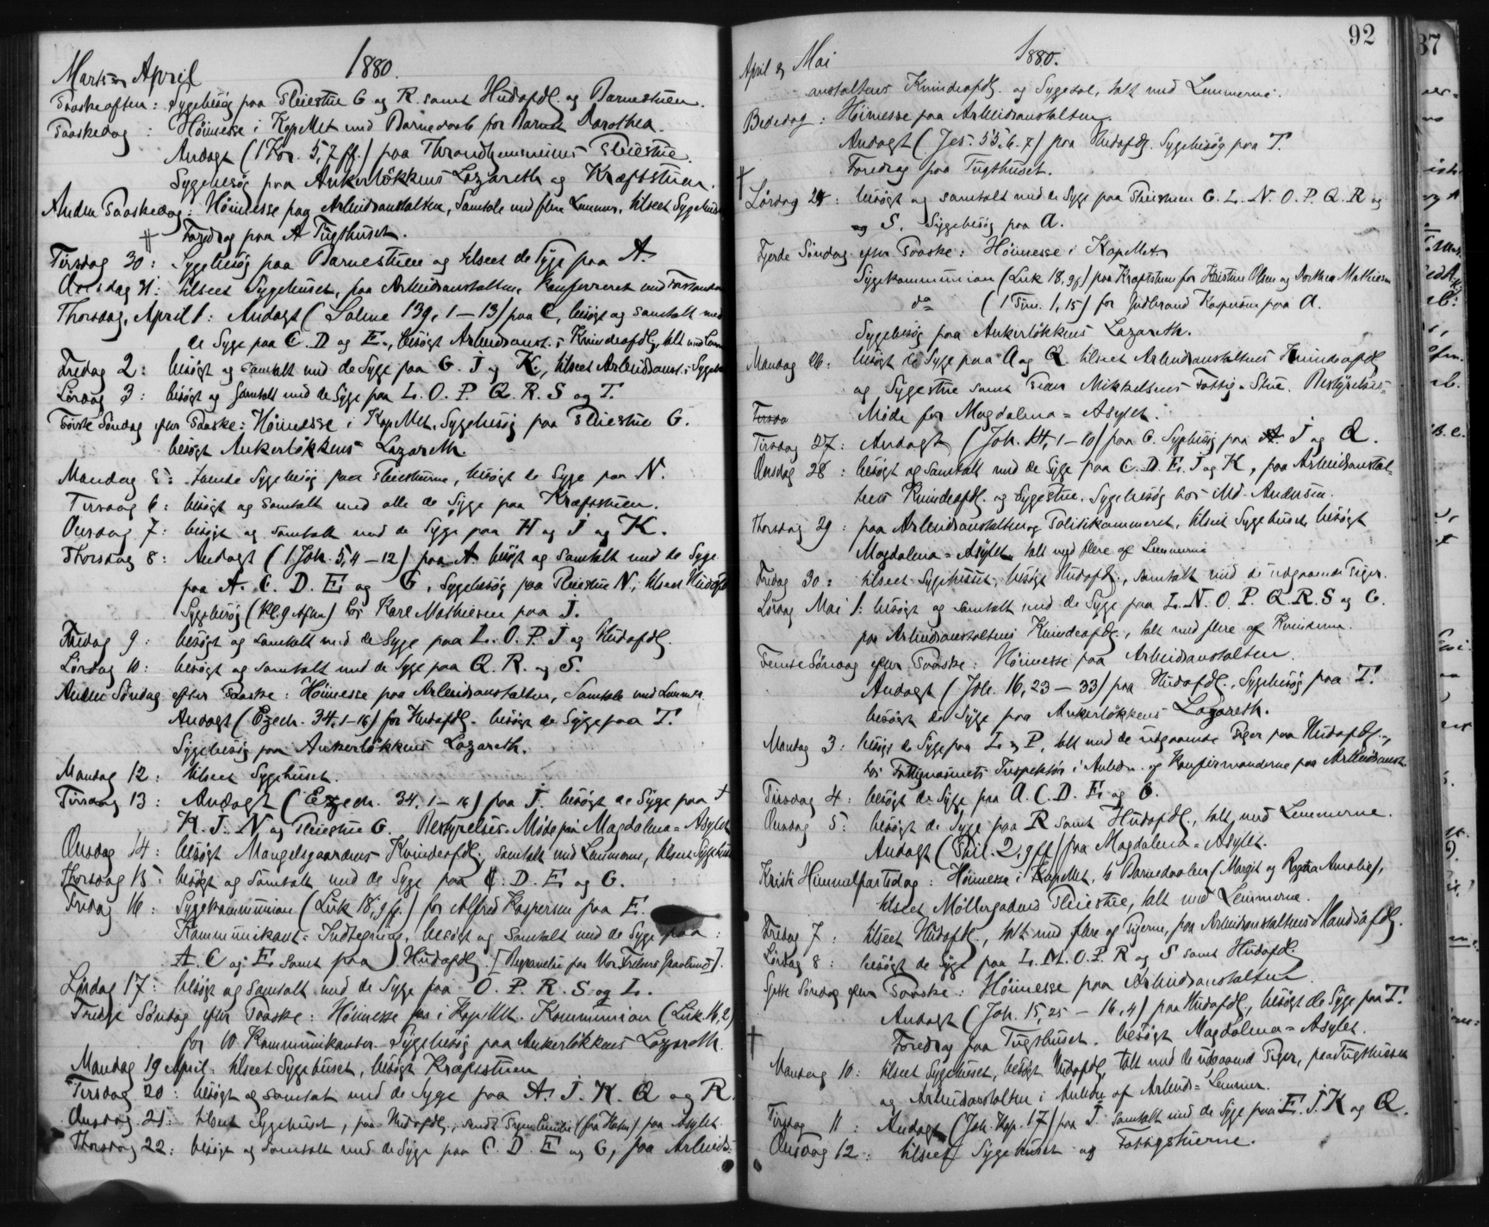 Marts og April 1880.
Paaskeaften: Sygebesøg paa Pleiestue G og R samt Hudafdlg. og Barnestuen.
Paaskedag: Høimesse i Kapellet med Barnedaab for Barnet Dorothea.
Andagt (1 Kor. 5,7 ff.) paa Throndhjemmernes Pleiestue.
Sygebesøg paa Ankerløkkens Lazareth og Kræftstuen.
Anden Paaskedag: Høimesse paa Arbeidsanstalten, Samtale med flere Lemmer, tilseet Sygehuset
Foredrag paa Tugthuset.
Tirsdag 30: Sygebesøg paa Barnestuen og tilseet de Syge paa A.
Onsdag 31: tilseet Sygehuset, paa Arbeidsanstalten, Konfereret med
Thorsdag, April 1: Andagt (Salme 139, 1-13) paa C, besøgt og samtalt med
de Syge paa C. D og E., besøgt Arbeidsanst.s Kvindeafdlg, talt med
Fredag 2: besøgt og samtalt med de Syge paa G. J og K, tilseet Arbeidsanst.s
Lørdag 3: besøgt og samtalt med de Syge paa L. O. P. Q. R. S og T.
Første Søndag efter Paaske: Høimesse i Kapellet. Sygebesøg paa Pleiestue G.
besøgt Ankerløkkens Lazareth.
Mandag 5: Sygebesøg paa Pleiestuerne, besøgt de Syge paa N.
Tirsdag 6: besøgt og samtalt med alle de Syge paa Kræftstuen.
Onsdag 7: besøgt og samtalt med de Syge paa H og J og K.
Thorsdag 8: Andagt (1 Joh. 5,4-12) paa A. besøgt og samtalt med de Syge
paa A. C. D. E og G, Sygebesøg paa Pleiestue N, tilseet Hudafdlg
Sygebesøg (Kl. 9 Aften) hos Karl Mathiesen paa J.
Fredag 9: besøgt og samtalt med de Syge paa L. O. P. J og Hudafdlg.
Lørdag 10: besøgt og samtalt med de Syge paa Q. R. og S.
Anden Søndag efter Paaske: Høimesse paa Arbeidsanstalten, Samtale med Lemmer.
Andagt (Ezech. 34,1-16) for Hudafdlg. besøgt de Syge paa T.
Sygebesøg paa Ankerløkkens Lazareth.
Mandag 12: tilseet Sygehuset.
Tirsdag 13: Andagt (Ezech. 34,1-16) paa J. besøgt de Syge paa
H. J. N og Pleiestue G. Bestyrelses-Møde paa Magdalena-Asylet
Onsdag 14: besøgt Mangelsgaardens Kvindeafdlg., samtalt med Lemmerne, tilseet Sygehuset
Thorsdag 15: besøgt og samtalt med de Syge paa C. D. E og G.
Fredag 16: Sygekommunion (Luk 18,9 fg.) for Alfred Kaspersen paa E.
Kommunikant-Indtegning, besøgt og samtalt med de Syge paa:
A. C og E samt paa Hudafdlg. [Begravelse paa Vor Frelsers Gravlund].
Lørdag 17: besøgt og samtalt med de Syge paa O. P. R. S. og L.
Tredje Søndag efter Paaske: Høimesse i Kapellet. Kommunion (Luk. 16,2)
for 10 Kommunikanter. Sygebesøg paa Ankerløkkens Lazareth.
Mandag 19 April: tilseet Sygehuset, besøgt Kræftstuen
Tirsdag 20: besøgt og samtalt med de Syge paa A. J. K. Q og R.
Onsdag 21: tilseet Sygehuset, paa Hudafdlg., paa Asylet.
Thorsdag 22: besøgt og samtalt med de Syge paa C. D. E og G, paa Arbeids-
92
April og Mai 1880.
anstaltens Kvindeafdlg. og Sygestue, talt med Lemmerne.
Bededag: Høimesse paa Arbeidsanstalten.
Andagt (Jes. 55,6-7) paa Hudafdlg. Sygebesøg paa T.
Foredrag paa Tugthuset.
Lørdag 24: besøgt og samtalt med de Syge paa Pleiestuen G. L. N. O. P. Q. R og
og S. Sygebesøg paa A.
Fjerde Søndag efter Paaske: Høimesse i Kapellet
Sygekommunion (Luk 18,9 f) paa Kræftstuen for Kirstine Olsen og Dorthea Mathiesen
do (1 Tim. 1,15) for Gudbrand Kaspersen paa A.
Sygebesøg paa Ankerløkkens Lazareth.
Mandag 26: besøgt de Syge paa A og Q tilseet Arbeidsanstaltens Kvindeafdlg
og Sygestue samt Peder Mikkelsens Fattig-Stue. Bestyrelses-
Møde for Magdalena-Asylet.
Tirsdag 27: Andagt (Joh. 14,1-10) paa G. Sygebesøg paa J og Q.
Onsdag 28: besøgt og samtalt med de Syge paa C. D. E. J og K, paa Arbeidsanstal-
tens Kvindeafdlg. og Sygestue. Sygebesøg hos Md. Andersen.
Thorsdag 29: paa Arbeidsanstalten og Politikammeret, tilseet Sygehuset, besøgt
Magdalena-Asylet, talt med flere af Lemmerne
Fredag 30: tilseet Sygehuset, besøgt Hudafdlg., samtalt med de udgaaende Piger.
Lørdag Mai 1: besøgt og samtalt med de Syge paa L. N. O. P. Q. R. S og G.
paa Arbeidsanstaltens Kvindeafdlg, talt med flere af Kvinderne.
Femte Søndag efter Paaske: Høimesse paa Arbeidsanstalten.
Andagt (Joh. 16,23-33) paa Hudafdlg., Sygebesøg paa T.
besøgt de Syge paa Ankerløkkens Lazareth.
Mandag 3: besøgt de Syge paa L og P, talt med de udgaaende Piger paa Hudafdlg.,
hos Fattigvæsenets Inspektør i Anledn. af Konfirmanderne paa Arbeidsanst.
Tirsdag 4: besøgt de Syge paa A. C. D. E og G.
Onsdag 5: besøgt de Syge paa R samt Hudafdlg, talt med Lemmerne.
Andagt (Phil. 2,9 ff) paa Magdalena-Asylet.
Kristi Himmelfartsdag: Høimesse i Kapellet, to Barnedaaber (Margit og Ragna Amalie),
tilseet Møllergadens Pleiestue, talt med Lemmerne.
Fredag 7: tilseet Hudafdlg, talt med flere af Pigerne, paa Arbeidsanstaltens Mandsafdlg.
Lørdag 8: besøgt de Syge paa L. M. O. P. R og S samt Hudafdlg
Sjette Søndag efter Paaske: Høimesse paa Arbeidsanstalten.
Andagt (Joh. 15,25 - 16,4) paa Hudafdlg, besøgt de Syge paa T.
Foredrag paa Tugthuset. besøgt Magdalena-Asylet.
Mandag 10: tilseet Sygehuset, besøgt Hudafdlg talt med de udgaaende Piger, paa Tugthuset
og Arbeidsanstalten i Anledn. af Arbeids-Lemmer.
Tirsdag 11: Andagt (Joh. Kap. 17) paa J. samtalt med de Syge paa E. J. K og Q.
Onsdag 12: tilseet Sygehuset og Fattigstuerne.